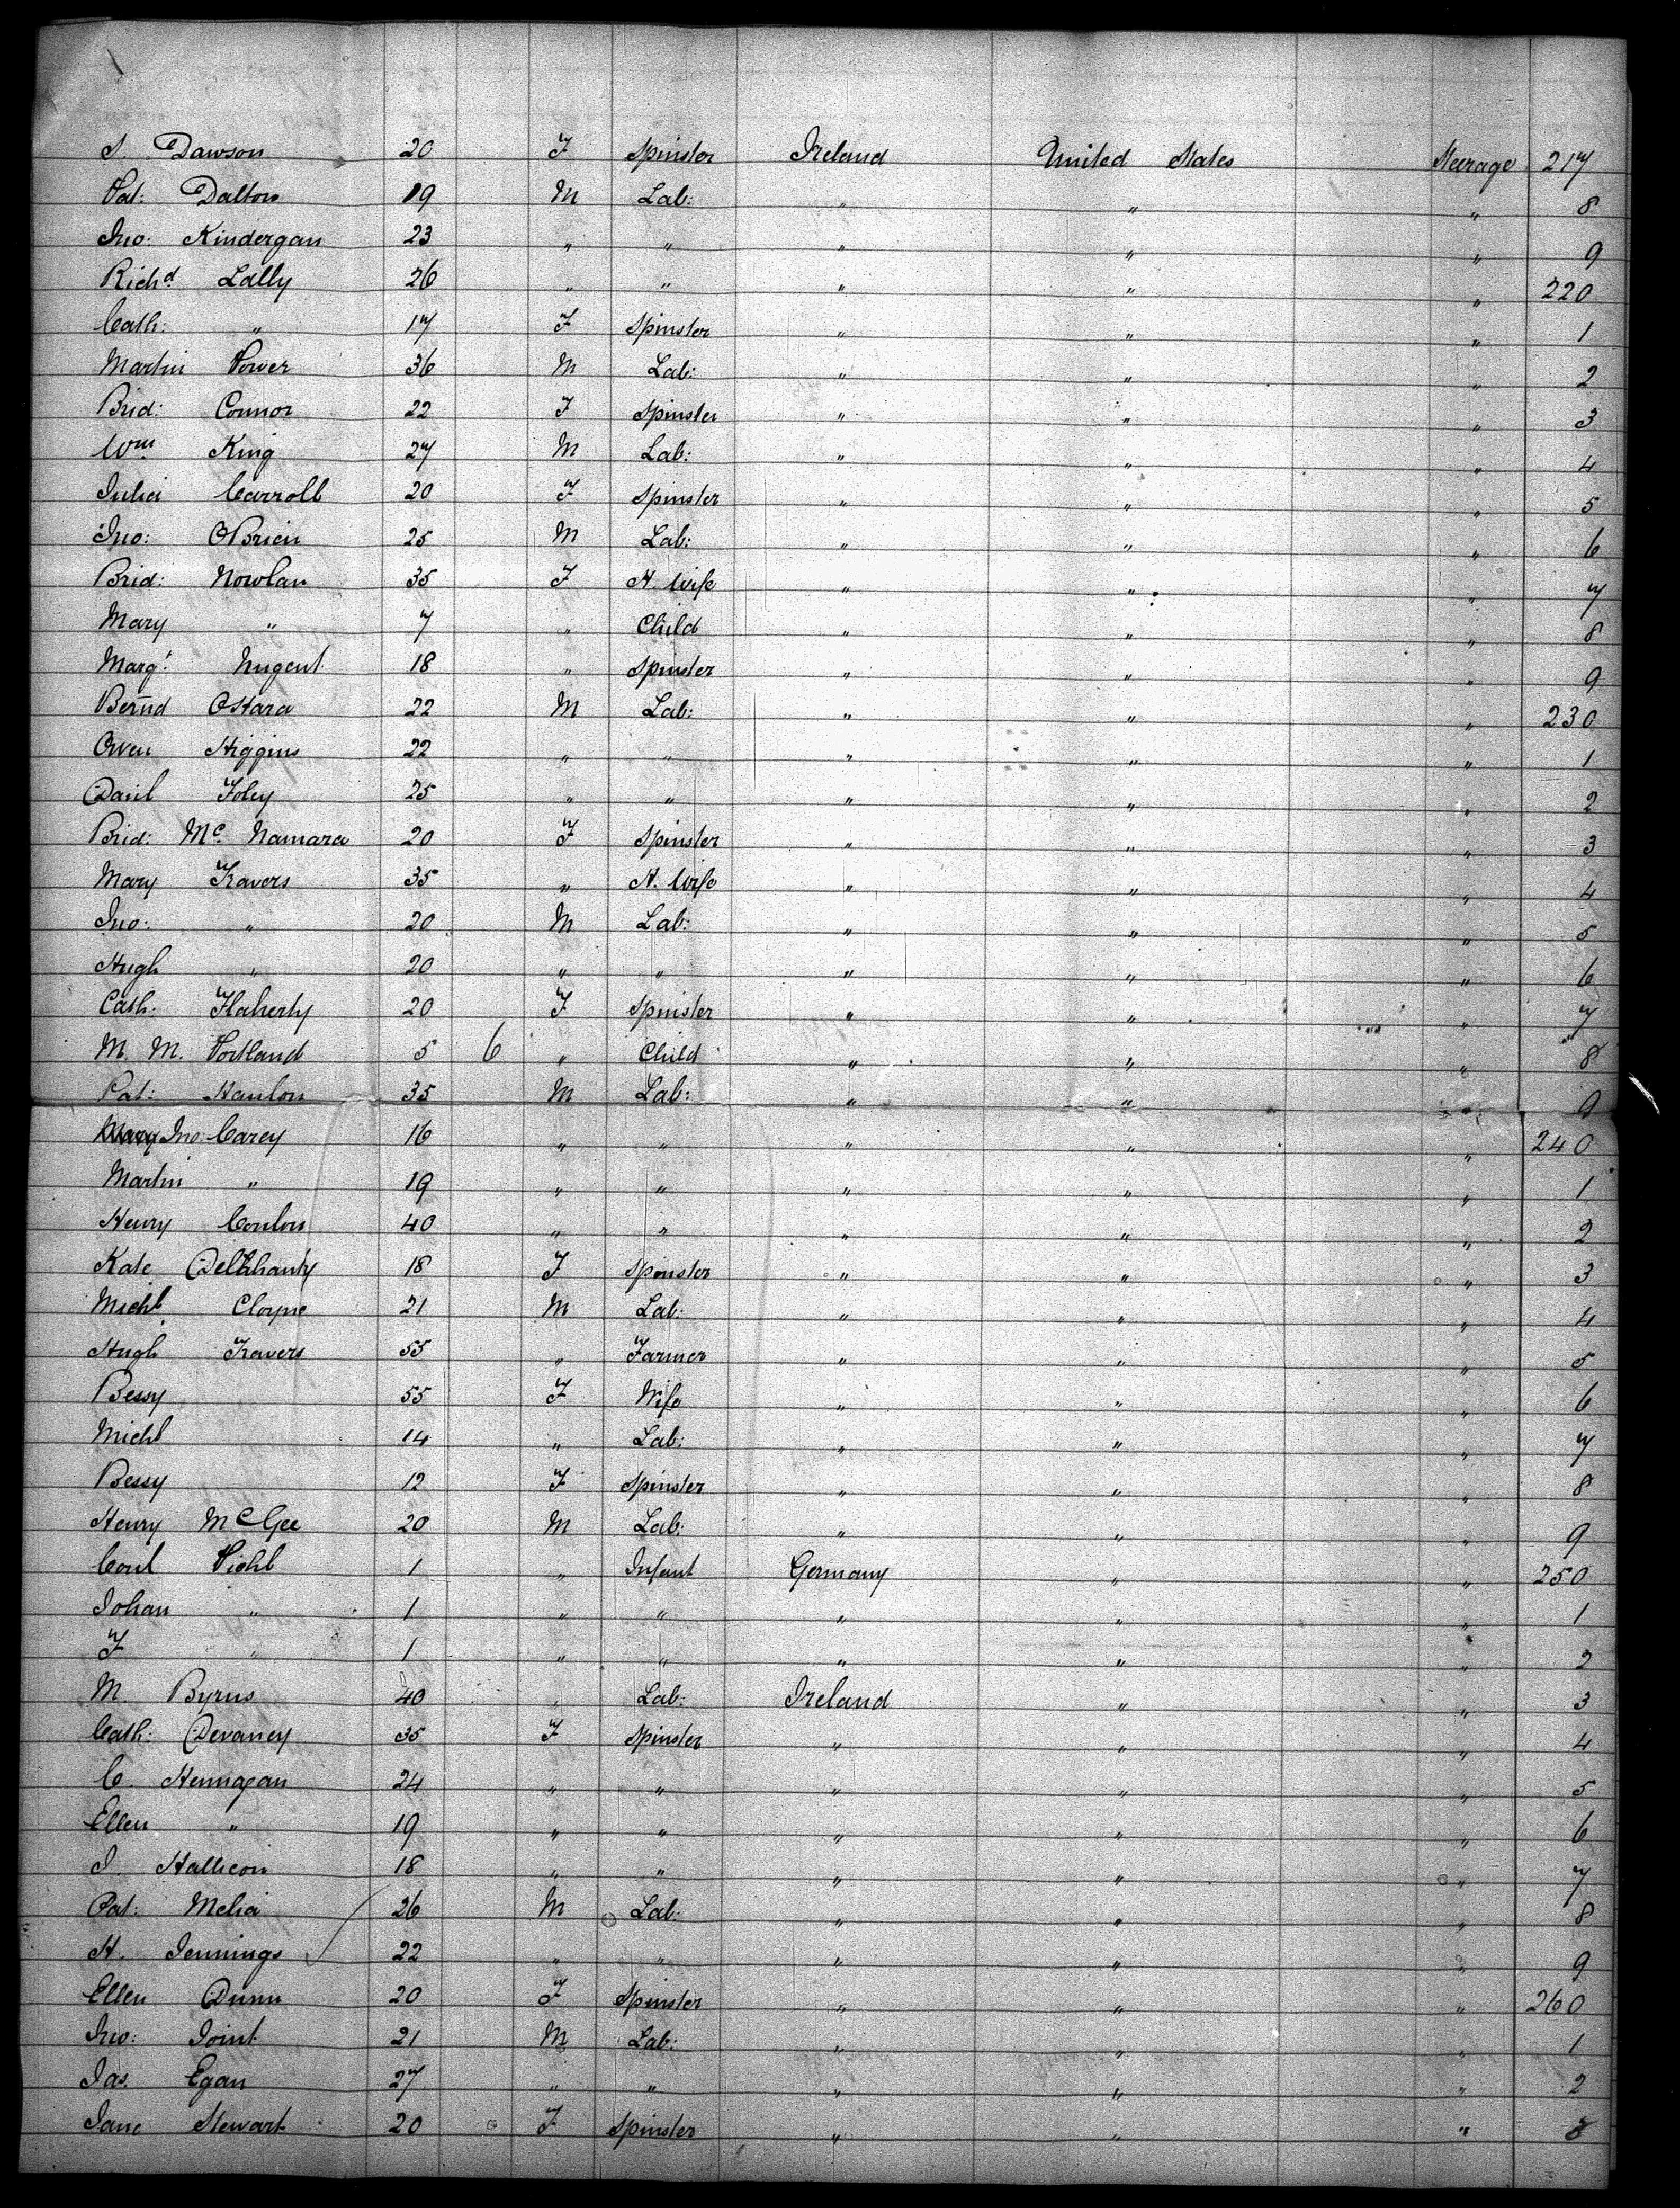 S. Dawson 20 F Spinster Ireland United States Steerage 217
Pat: Dalton 19 M Lab: " " " 8
Jno: Kindergan 23 " " " " " 9
Richd Lally 26 " " " " " 220
Cath: " 17 F Spinster " " " 1
Martin Power 36 M Lab: " " " 2
Brid: Connor 22 F Spinster " " " 3
Wm King 27 M Lab: " " " 4
Julia Carroll 20 F Spinster " " " 5
Jno: OBrien 25 M Lab: " " " 6
Brid: Nowlan 35 F H. Wife " " " 7
Mary " 7 " Child " " " 8
Margt Nugent 18 " Spinster " " " 9
Bernd OHara 22 M Lab: " " " 230
Owen Higgins 22 " " " " " 1
Danl Foley 25 " " " " " 2
Brid: Mc Namara 20 F Spinster " " " 3
Mary Travers 35 " H. Wife " " " 4
Jno: " 20 M Lab: " " " 5
Hugh " 20 " " " " " 6
Cath: Flaherty 20 F Spinster " " " 7
M. M. Portland 5 6 " Child " " " 8
Pat: Hanlon 35 M Lab: " " " 9
Mary Jno: Carey 16 " " " " " 240
Martin " 19 " " " " " 1
Henry Conlon 40 " " " " " 2
Kate Delahanty 18 F Spinster " " " 3
Michl Cloyne 21 M Lab: " " " 4
Hugh Travers 55 " Farmer " " " 5
Bessy 55 F Wife " " " 6
Michl 14 " Lab: " " " 7
Bessy 12 F Spinster " " " 8
Henry McGee 20 M Lab: " " " 9
Carl Piehl 1 " Infant Germany " " 250
Johan " 1 " " " " " 1
F " 1 " " " " " 2
M. Byrns 40 " Lab: Ireland " " 3
Cath: Devaney 35 F Spinster " " " 4
C. Hennagan 24 " " " " " 5
Ellen " 19 " " " " " 6
J. Hallicon 18 " " " " " 7
Pat: Melia 26 M Lab: " " " 8
H. Jennings 22 " " " " " 9
Ellen Dunn 20 F Spinster " " " 260
Jno: Joint 21 M Lab: " " " 1
Jas. Egan 27 " " " " " 2
Jane Stewart 20 F Spinster " " " 3